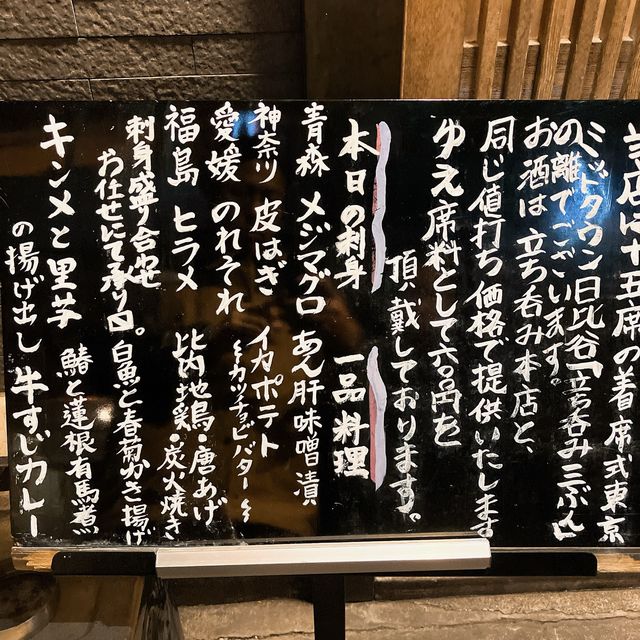 当店は十五席の着席式東京
ミッドタウン日比谷「立ち呑み三ぶん」
の離でございます。
お酒は立ち呑み本店と、
同じ値打ち価格で提供いたします
ゆえ席料として六〇円を
頂戴しております。
本日の刺身
青森 メジマグロ
神奈川 皮はぎ
愛媛 のれそれ
福島 ヒラメ
刺身盛り合わせ
お任せにて承り〼。
一品料理
あん肝味噌漬
イカポテト
〜カッテョビバター〜
比内地鶏・唐あげ
・炭火焼き
白魚と春菊かき揚げ
鰆と蓮根有馬煮
キンメと里芋
の揚げ出し
牛すじカレー